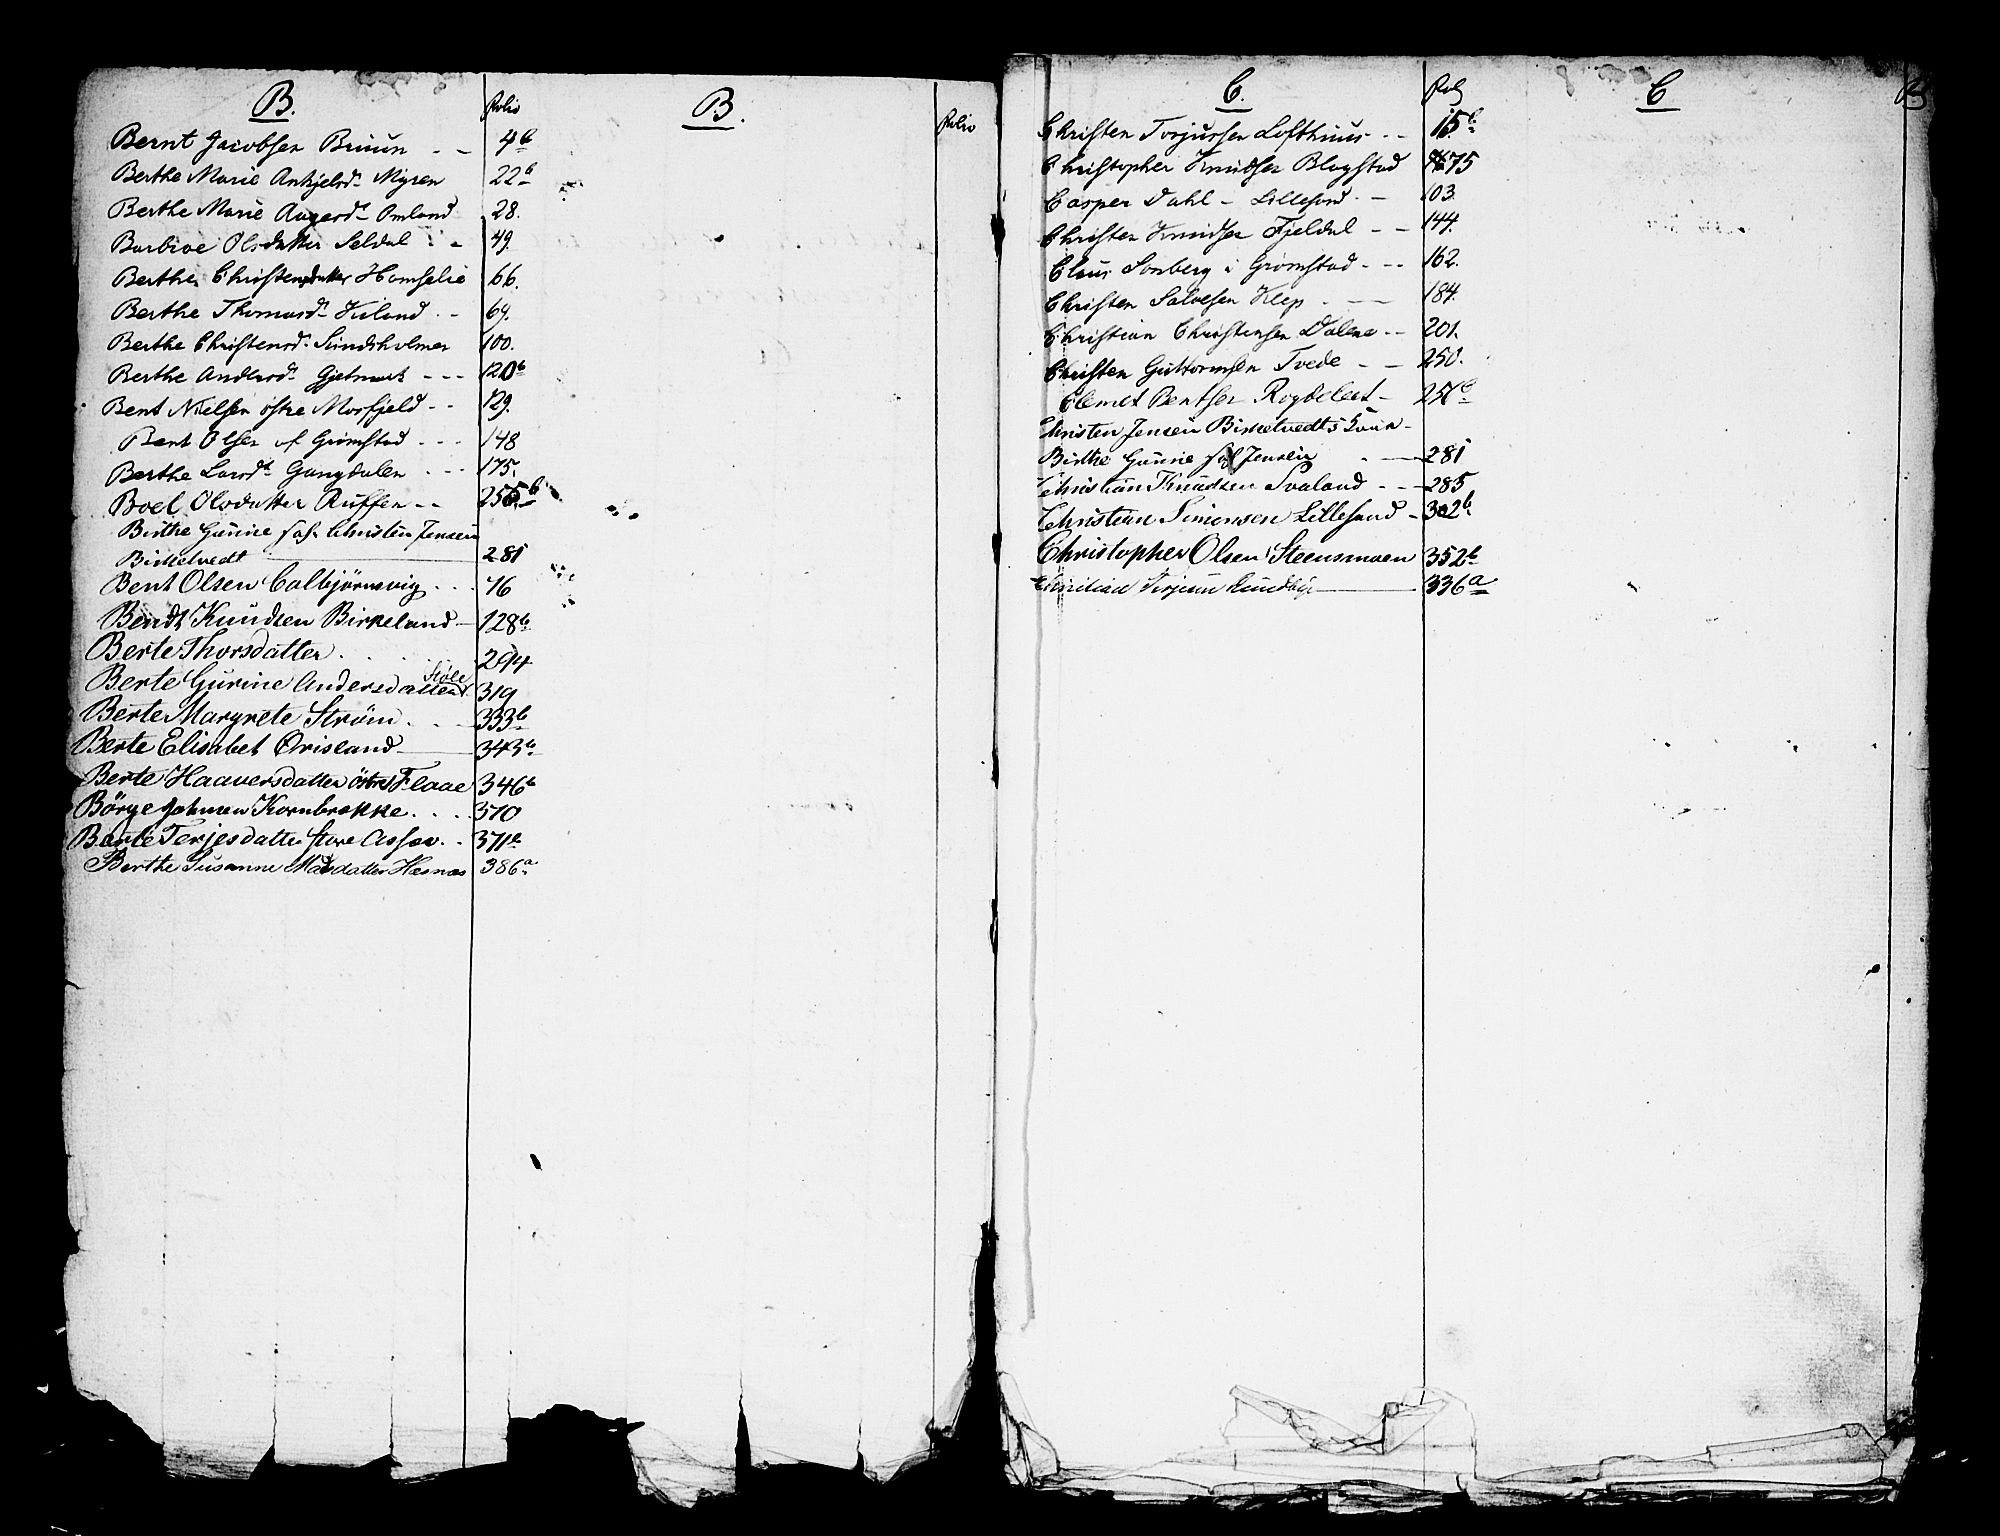 B.
Folio
Bernt Jacobsen Bruun - - 4b
Berthe Marie Ankjelsd. Myren 22b
Berthe Marie Aagesd. Omland 28.
Barbroe Olsdatter Seldal - - 49.
Berthe Christensdatter Homselie 66.
Berthe Thomasd. Kiland - - 69.
Berthe Christensd. Sundsholmen 100.
Berthe Andersd. Gjetmark - - - 120b
Bent Nielsen østre Morfjeld - - 129.
Bent Olsen af Grimstad - - - 148
Berthe Larsd. Gangdalen - - - 175.
Boel Olsdatter Ruffen - - 255b
Birthe Gunine sal. Christen Jensen
Birketvedt 281
Bent Olsen Calbjörnsvig . . . 76
Bendt Knudsen Birkeland 128b
Berte Thorsdatter . . . . 294
Berte Gurine Andersdatter 319
Berte Margrete Strøm . . . 333b
Berte Elisabet Øvisland 343b
Berte Haaversdatter östre Flaae 346b
Börge Johnsen Kornbrekke . . . . 370
Berte Terjesdatter Store 371b
Berthe Susanne Madsdatter Hesnæs 386a
B.
Folio
C.
Fol
Christen Torjussen Lofthuus - - 15b
Christopher Knudsen Blagstad 75
Casper Dahl - Lillesand. - 103.
Christen Knudsen Fjeldal - - 144.
Claus Sonberg i Grimstad - - - 162.
Christen Salvesen Klep . - - 184.
Christian Christensen Dalene - - 201.
Christen Guttormsen Tvede - - 250.
Clemet Bentsen -
Christen Jensen Birketvedts
Birthe Gunine sal Jensen 281
Christian Knudsen Svaland - - - 285
Christian Simonsen Lillesand - 302b
Christopher Olsen Steensmoen 352b
Christian 336a
C